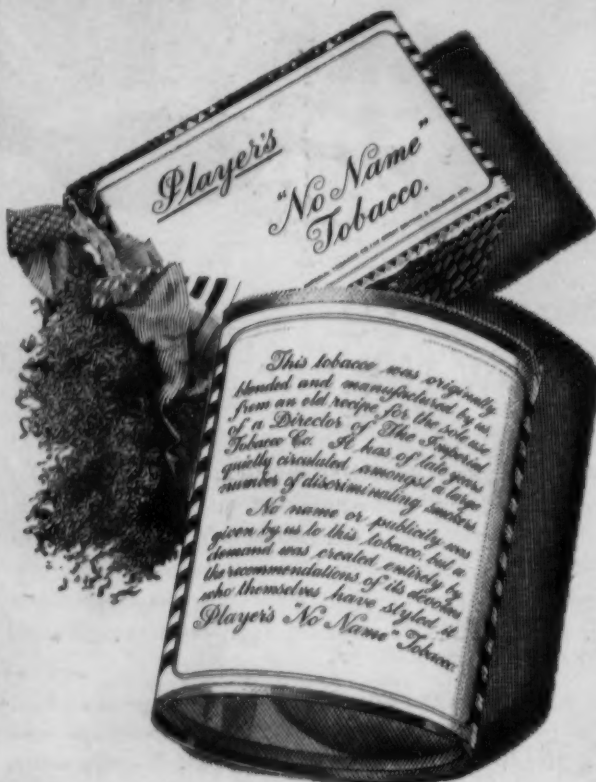 Player's
"No Name"
Tobacco.
This tobacco was originally
blended and manufactured by us,
from an old recipe for the sole use
of a Director of The Imperial
Tobacco Co. It has of late years
quietly circulated amongst a large
number of discriminating smokers
No name or publicity was
given by us to this tobacco, but a
demand was created entirely by
the recommendations of its devotees
who themselves have styled it
Player's "No Name" Tobacco